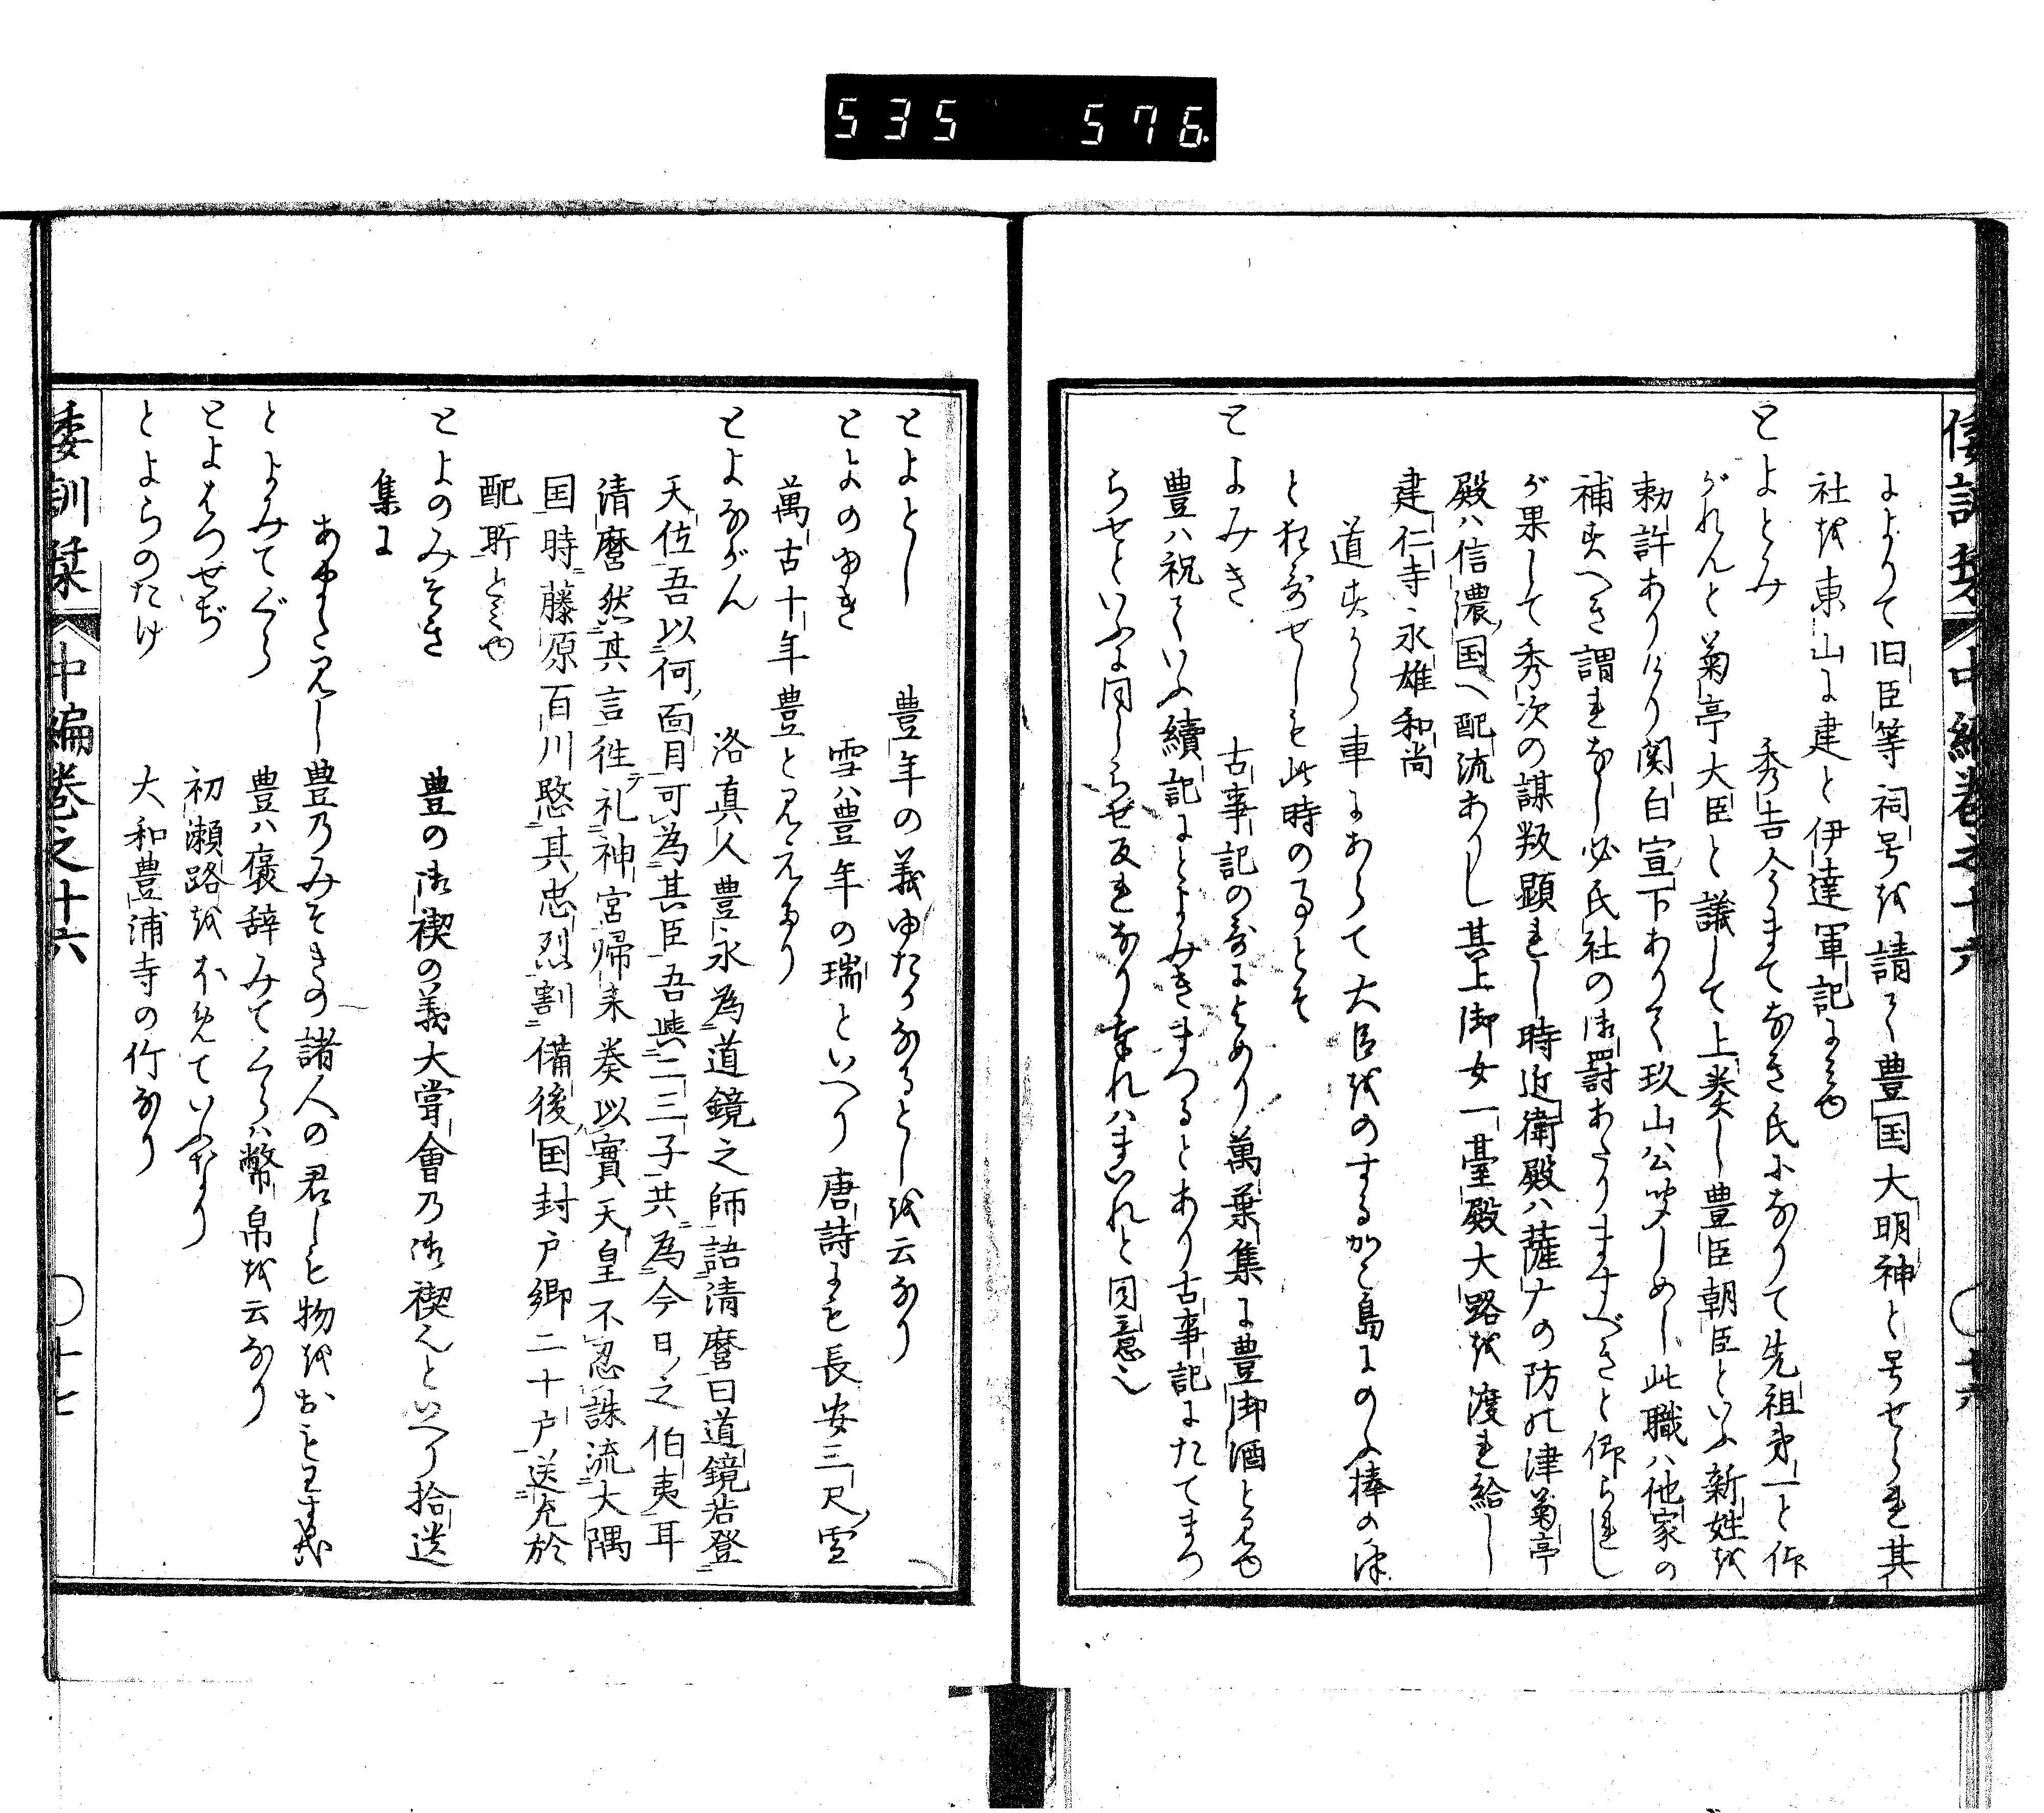 535 576
倭訓栞 中編巻之十六 〇十六
によりて旧臣等祠号を請て豊国大明神と号せられ其
社を東山に建と伊達軍記にみゆ
とよとみ 秀吉今まてなき氏になりて先祖第一と作
られんと菊亭大臣と議して上奏し豊臣朝臣といふ新姓を
勅許ありけり関白宣下ありて玖山公聞しめし此職ハ他家の
補すへき謂れなし必氏社の御罸あたりますべきと仰られし
が果して秀次の謀叛顕れし時近衛殿ハ薩ナの防の津菊亭
殿ハ信濃国へ配流ありし其上御女一臺殿大路を渡され給し
建仁寺永雄和尚
道すから車にあらて大臣をのするかこ島にのふ棒の津
と狂哥せしも此時の事とそ
とよみき 古事記の哥によめり萬葉集に豊御酒とみゆ
豊ハ祝ていふ續記にとよみきまつるとあり古事記にたてまつ
らせといふに同しらせ反れなり奉れハまいれと同意也
とよとし 豊年の義ゆたかなるとしを云なり
とよのゆき 雪ハ豊年の瑞といへり唐詩にも長安三尺雪
萬古十年豊と見えたり
とよながん 洛真人豊永為道鏡之師語清麿曰道鏡若登
天位吾以何面目可為其臣吾與二三子共為今日之伯夷耳
清麿然其言徃テ礼神宮帰来奏以實天皇不忍誅流大隅
国時藤原百川愍其忠烈割備後国封戸郷二十戸送充於
配所とみゆ
とよのみそき 豊の御禊の義大嘗會乃御禊をといへり拾遺
集に
あまた見し豊乃みそきの諸人の君しも物をおもはする哉
とよみてぐら 豊ハ褒辞みてくらハ幣帛を云なり
とよはつせぢ 初瀬路をほめていふなり
とよらのたけ 大和豊浦寺の竹なり
倭訓栞 中編巻之十六 〇十七